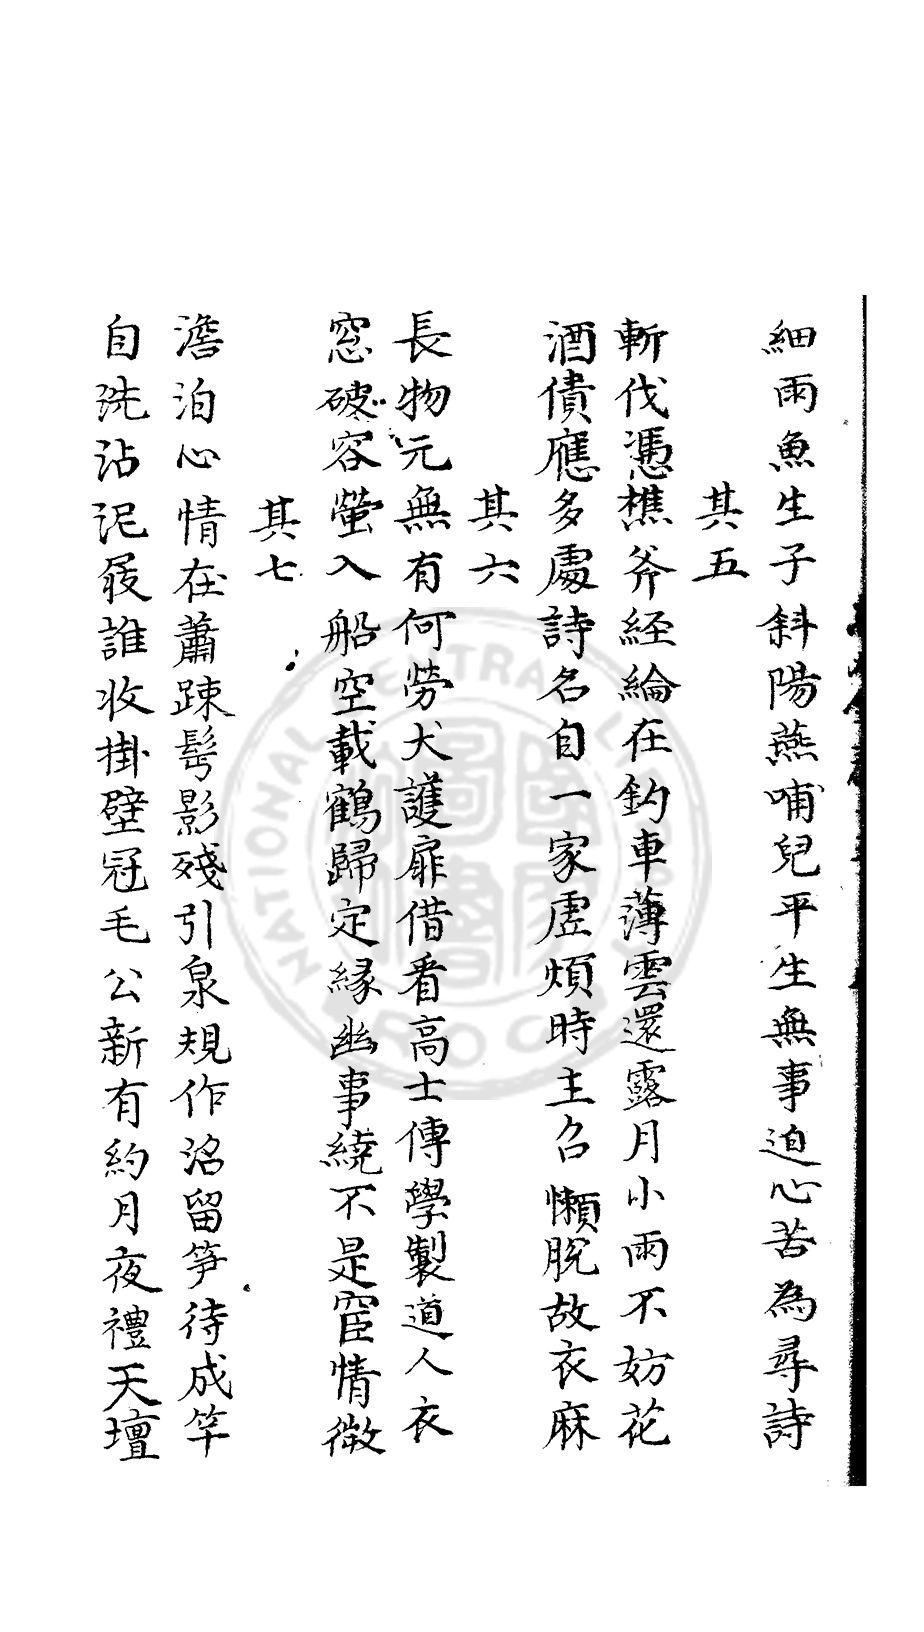 細雨魚生子斜陽燕哺兒平生無事迫心苦為尋詩
其五
斬伐憑樵斧經綸在釣車薄雲還露月小雨不妨花
酒債應多處詩名自一家虛煩時主召懶脫故衣麻
其六
長物元無有何勞犬護扉借看高士傳學製道人衣
窓破容螢入船空載鶴歸定緣幽事繞不是宦情微
其七
澹泊心情在蕭踈髩影殘引泉規作沼留笋待成竿
自洗沾泥屐誰收掛壁冠毛公新有約月夜禮天壇
NATIONAL CENTRAL LIBRARY
R O C